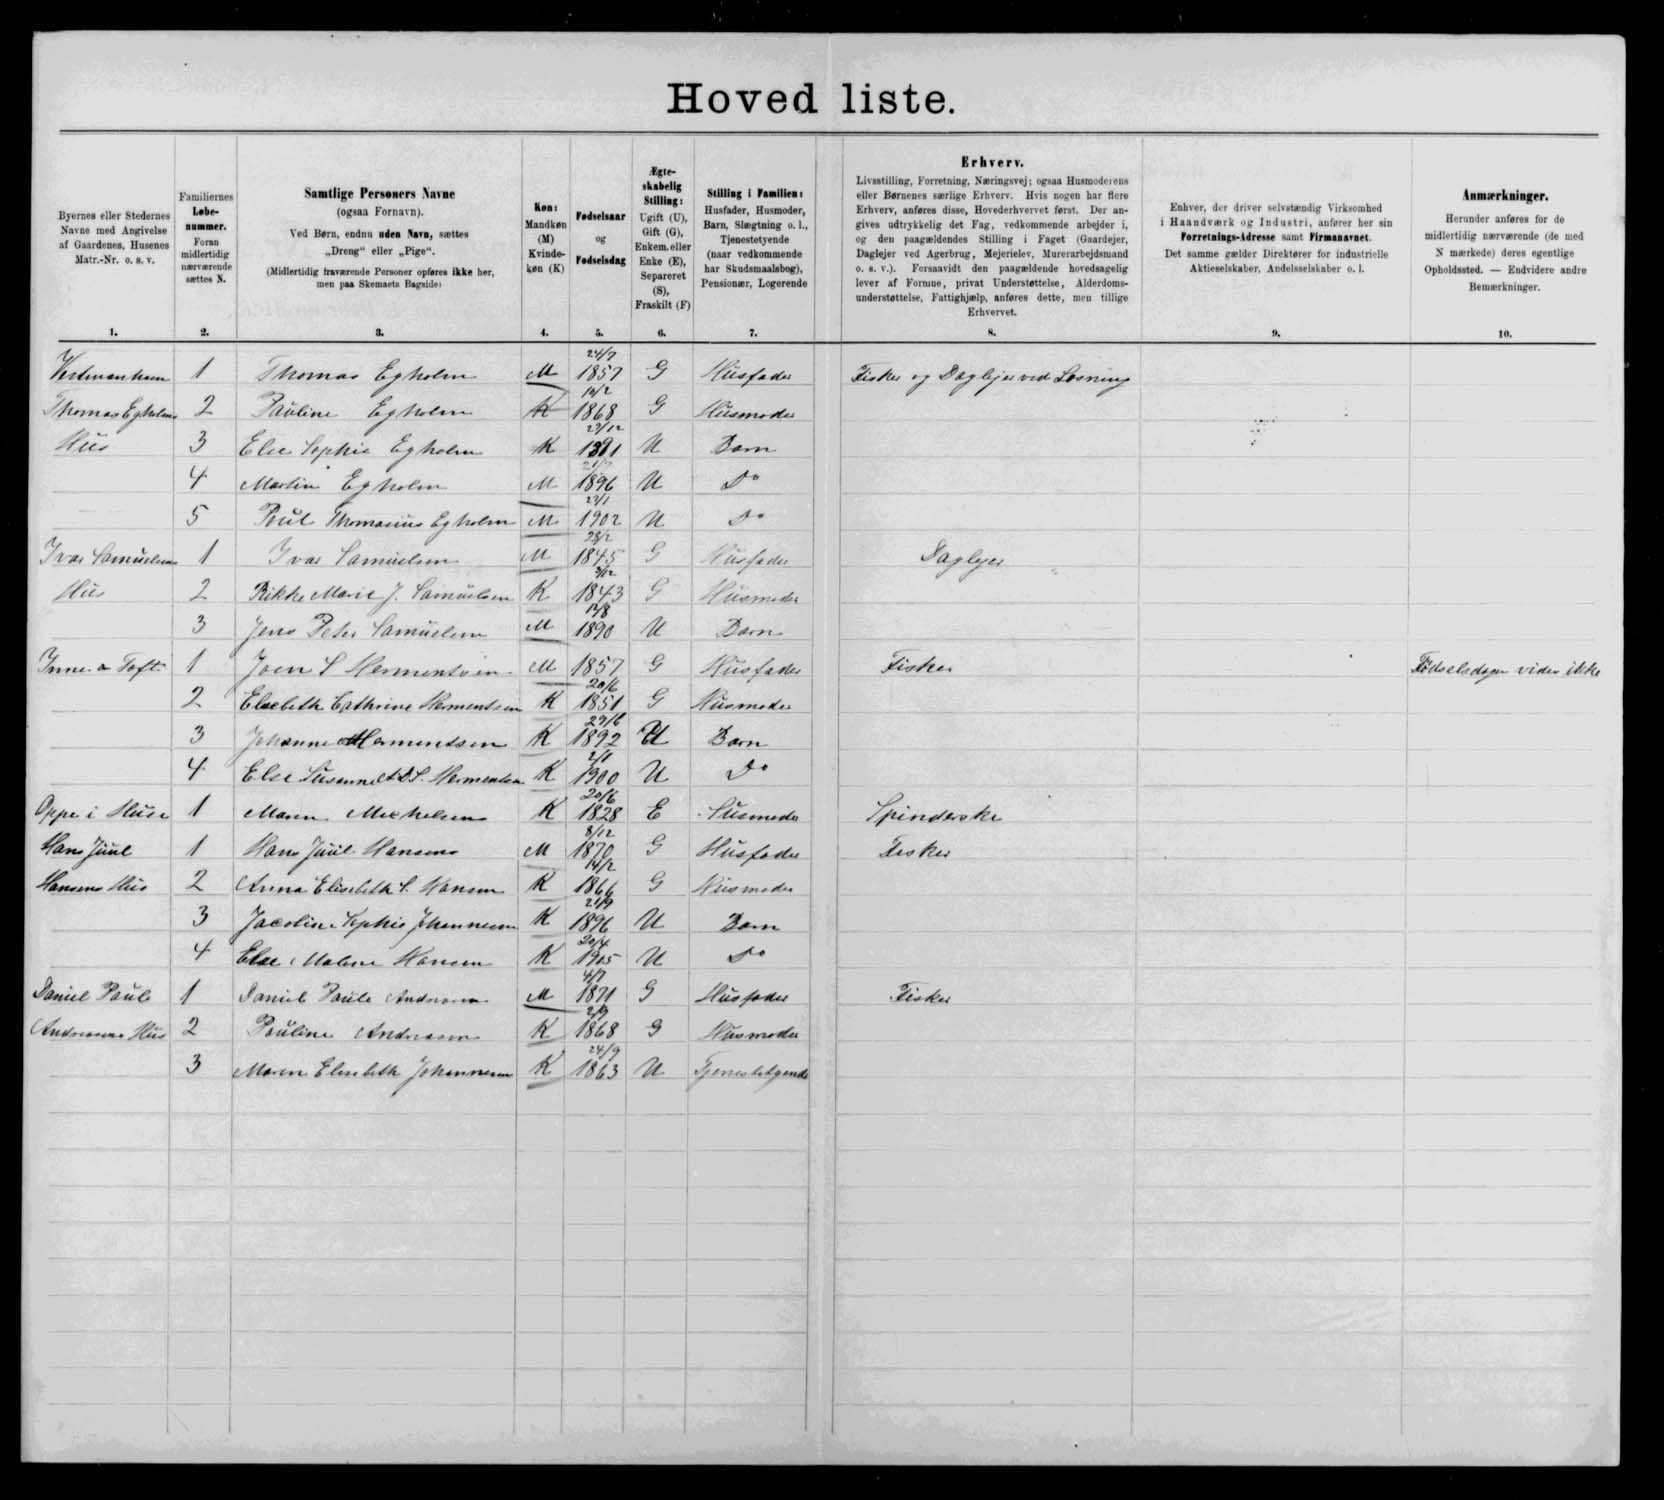 Hoved liste.
Byernes eller Stedernes
Navne med Angivelse
af Gaardenes, Husenes
Matr.-Nr. o. s. v.
1.
Familiernes
Løbe-
nummer.
Foran
midlertidig
nærværende
sættes N.
2.
Samtlige Personers Navne
(ogsaa Fornavn).
Ved Børn, endnu uden Navn, sættes
„Dreng“ eller „Pige“.
(Midlertidig fraværende Personer opføres ikke her,
men paa Skemaets Bagside)
3.
Køn:
Mandkøn
(M)
Kvinde-
køn (K)
4.
Fødselsaar
og
Fødselsdag
5.
Ægte-
skabelig
Stilling:
Ugift (U),
Gift (G),
Enkem. eller
Enke (E),
Separeret
(S),
Fraskilt (F)
6.
Stilling i Familien:
Husfader, Husmoder,
Barn, Slægtning o. l.,
Tjenestetyende
(naar vedkommende
har Skudsmaalsbog),
Pensionær, Logerende
7.
Erhverv.
Livsstilling, Forretning, Næringsvej; ogsaa Husmoderens
eller Børnenes særlige Erhverv. Hvis nogen har flere
Erhverv, anføres disse, Hovederhvervet først. Der an-
gives udtrykkelig det Fag, vedkommende arbejder i,
og den paagældendes Stilling i Faget (Gaardejer,
Daglejer ved Agerbrug, Mejerielev, Murerarbejdsmand
o. s. v.). Forsaavidt den paagældende hovedsagelig
lever af Formue, privat Understøttelse, Alderdoms-
understøttelse, Fattighjælp, anføres dette, men tillige
Erhvervet.
8.
Enhver, der driver selvstændig Virksomhed
i Haandværk og Industri, anfører her sin
Forretnings-Adresse samt Firmanavnet.
Det samme gælder Direktører for industrielle
Aktieselskaber, Andelsselskaber o. l.
9.
Anmærkninger.
Herunder anføres for de
midlertidig nærværende (de med
N mærkede) deres egentlige
Opholdssted. — Endvidere andre
Bemærkninger.
10.
Vestmanhavn 1 Thomas Egholm M 24/7 1857 G Husfader Fisker og Daglejer ved Losning
Thomas Egholms 2 Pauline Egholm K 1868 G Husmoder
Hus 3 Else Sophie Egholm K 23/12 U Barn
4 Martin Egholm M 1896 U Do
5 Poul Thomasius Egholm M 23/1 1902 U Do
Ivar Samuelsens 1 Ivar Samuelsen M 23/2 1845 G Husfader Daglejer
Hus 2 Rikke Marie J. Samuelsen K 1843 G Husmoder
3 Jens Peter Samuelsen M 1890 U Barn
Inne a Toft 1 Joen S Hermentsen M 1857 G Husfader Fisker Fødselsdagen vides ikke
2 Elsebeth Cathrine Hermentsen K 20/6 1851 G Husmoder
3 Johanne Hermentsen K 29/6 1892 U Barn
4 Else Hermentsen K 2/1 1900 U Do
Oppe i Huse 1 Maren Michelsen K 20/6 1828 E Husmoder Spinderske
Hans Juul 1 Hans Juul Hansen M 8/12 1870 G Husfader Fisker
Hansens Hus 2 Anna Elisebeth S. Hansen K 14/2 1866 G Husmoder
3 Jacobine Sophie Johannesen K 21/9 1896 U Barn
4 Else Malene Hansen K 20/4 1905 U Do
Daniel Pauli 1 Daniel Pauli Andreasen M 4/7 1871 G Husfader Fisker
Andreasens Hus 2 Pauline Andreasen K 2/9 1868 G Husmoder
3 Maren Elisebeth Johannesen K 24/9 1863 U Tjenestetyende